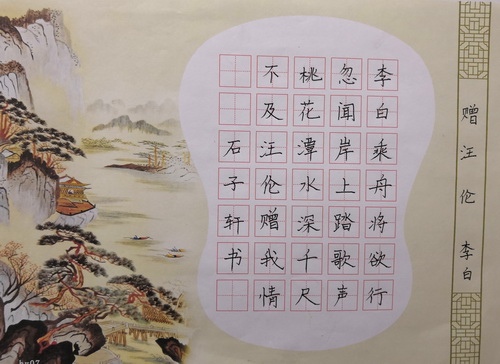 赠汪伦 李白
李白乘舟将欲行
忽闻岸上踏歌声
桃花潭水深千尺
不及汪伦赠我情
石子轩书